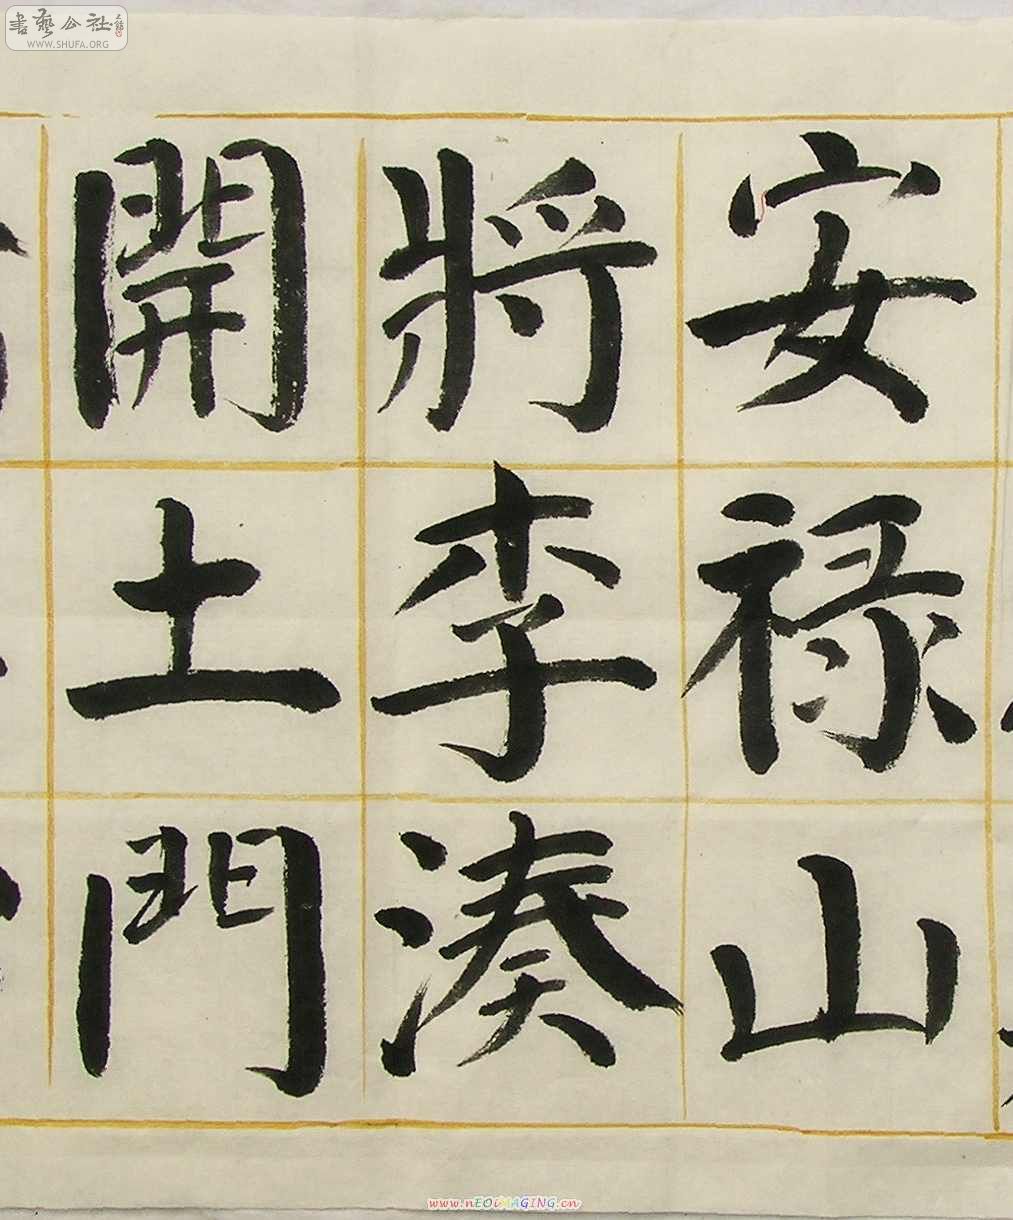 安禄山
將李湊
開土門
書藝公社
WWW.SHUFA.ORG
www.nEOiMAGING.cn